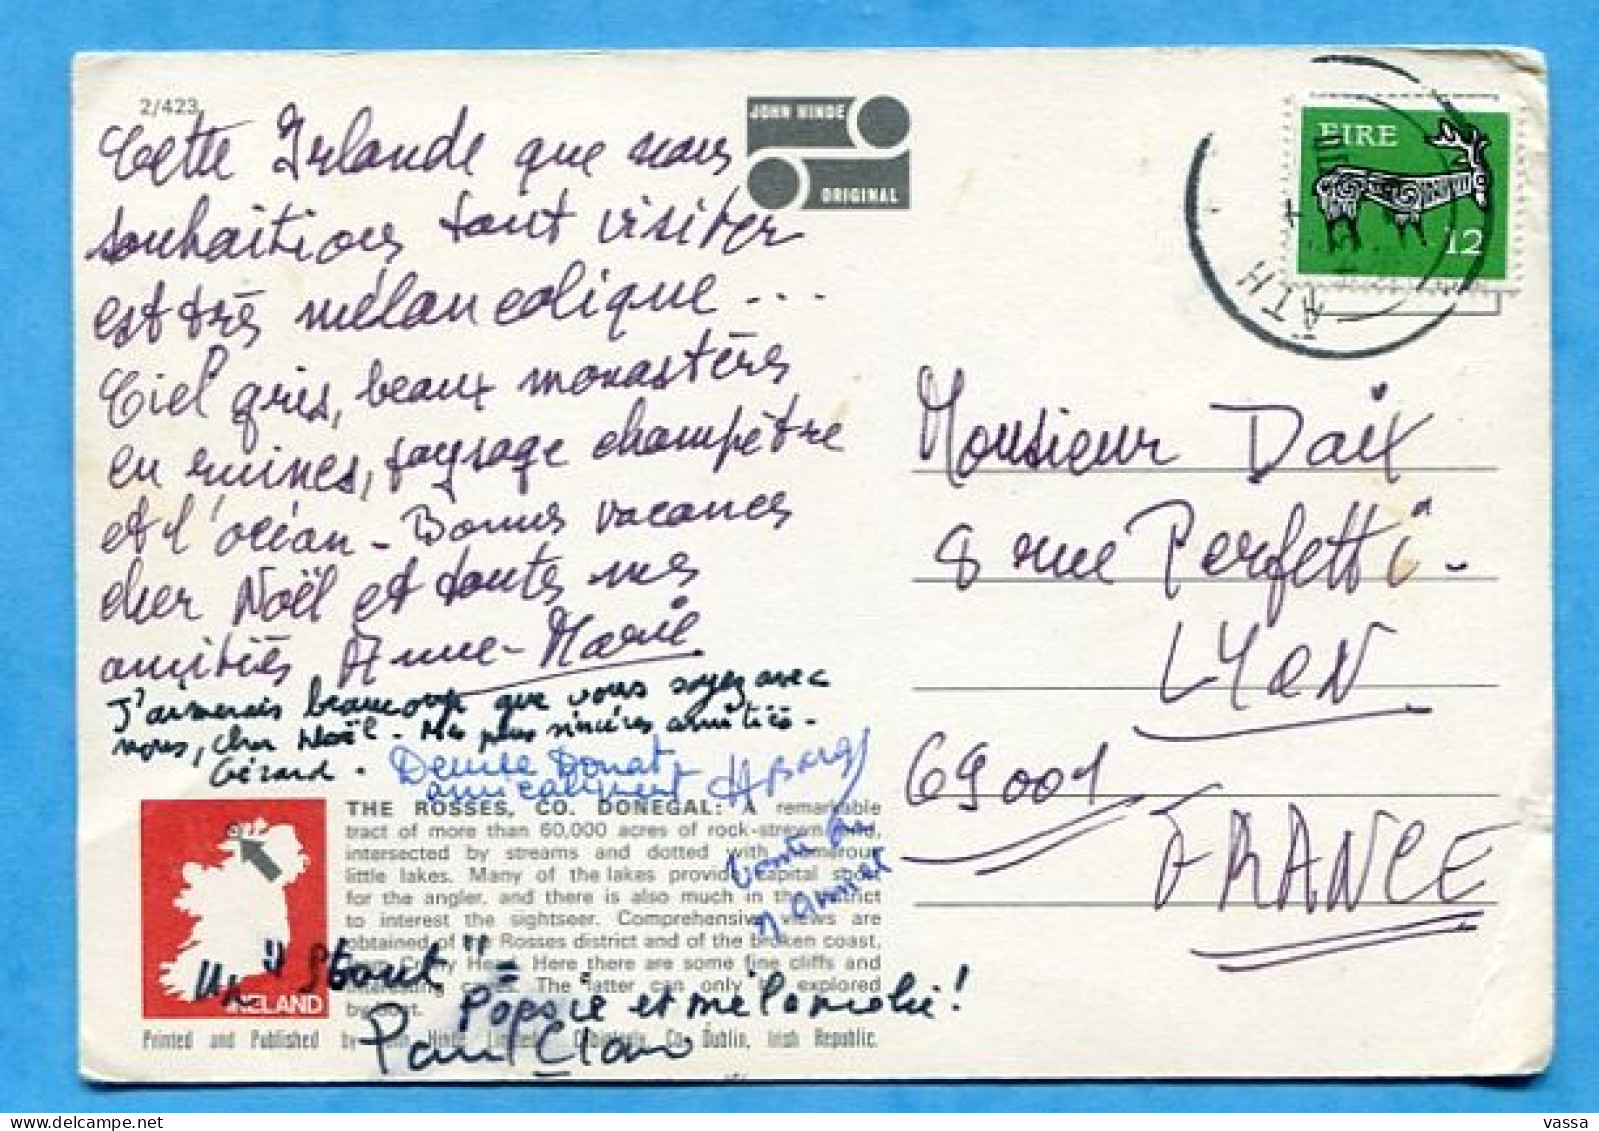 2/423
Cette Irlande que nous
souhaitions tant visiter
est très mélancolique...
Ciel gris, beaux monastères
en ruines, paysage champêtre
et l'océan - Bonnes vacances
cher Noël et toutes mes
amitiés Anne-Marie
J'aimerais beaucoup que vous soyez avec
nous, cher Noël. Mes plus sincères amitiés -
Gérard. Denise Donat
amicalement
Un "Stout" =
Popsie et mélancolie!
Paul
JOHN HINDE
ORIGINAL
EIRE
12
ÁTH
Monsieur Daix
8 rue Perfetti -
LYON
69001
FRANCE
THE ROSSES, CO. DONEGAL: A remarkable
tract of more than 60,000 acres of rock-strewn land,
intersected by streams and dotted with numerous
little lakes. Many of the lakes provide capital sport
for the angler, and there is also much in the district
to interest the sightseer. Comprehensive views are
obtained of the Rosses district and of the broken coast,
from Crohy Head. Here there are some fine cliffs and
caves. The latter can only be explored
by boat.
IRELAND
Printed and Published by John Hinde Limited, Co. Dublin, Irish Republic.
vassa